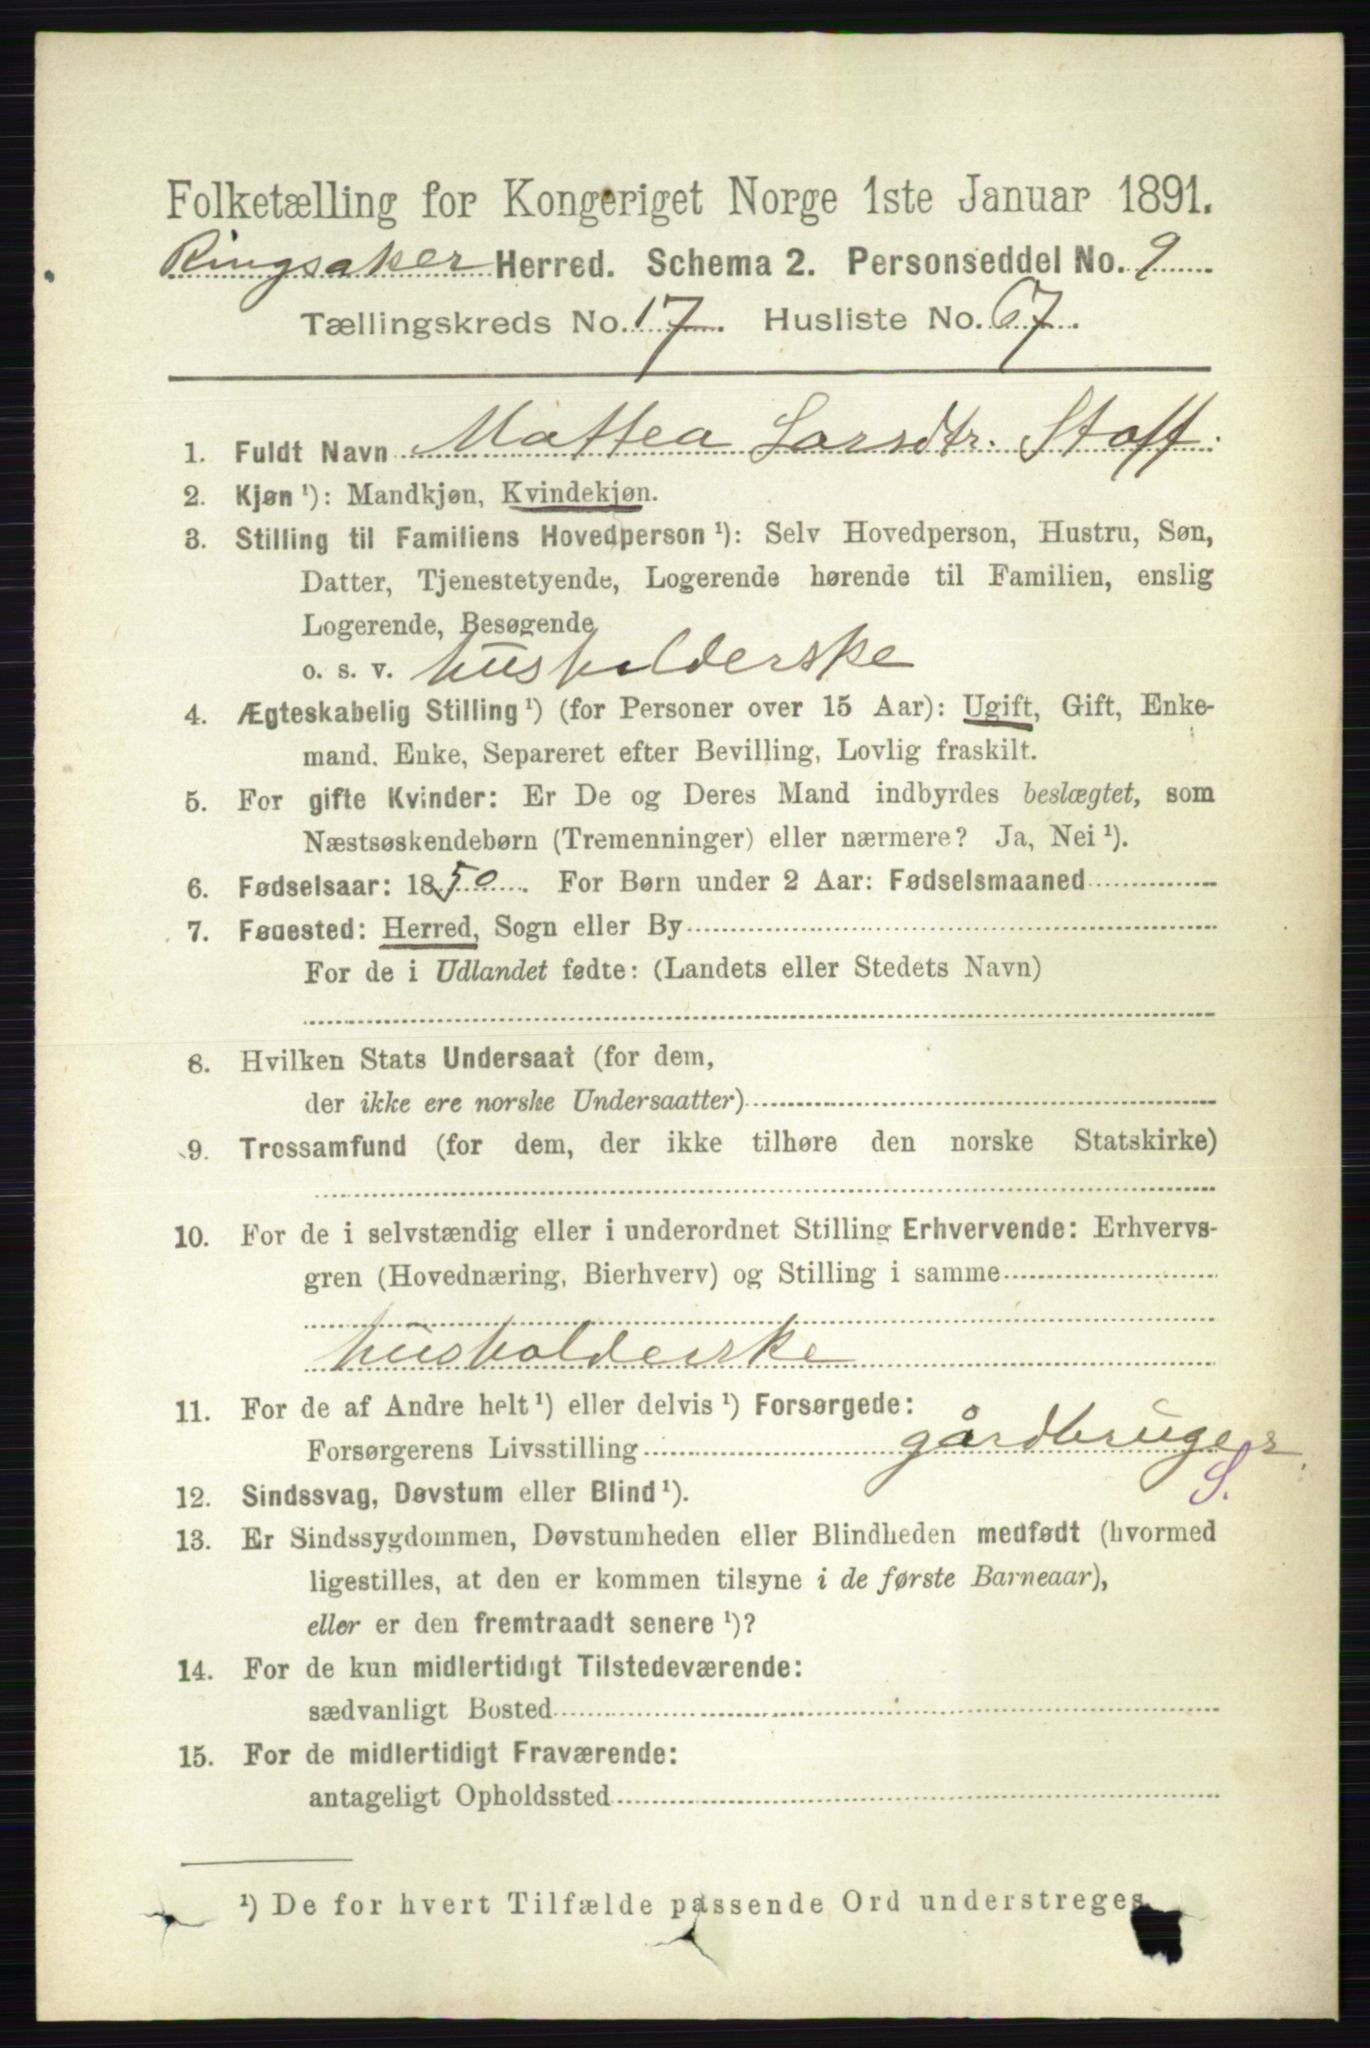 Folketælling for Kongeriget Norge 1ste Januar 1891.
Ringsaker Herred. Schema 2. Personseddel No. 9
Tællingskreds No. 17. Husliste No. 67.
1. Fuldt Navn Mattea Larsdtr. Staff.
2. Kjøn ¹): Mandkjøn, Kvindekjøn.
3. Stilling til Familiens Hovedperson ¹): Selv Hovedperson, Hustru, Søn,
Datter, Tjenestetyende, Logerende hørende til Familien, enslig
Logerende, Besøgende
o. s. v. husholderske
4. Ægteskabelig Stilling ¹) (for Personer over 15 Aar): Ugift, Gift, Enke-
mand. Enke, Separeret efter Bevilling, Lovlig fraskilt.
5. For gifte Kvinder: Er De og Deres Mand indbyrdes beslægtet, som
Næstsøskendebørn (Tremenninger) eller nærmere? Ja, Nei ¹).
6. Fødselsaar: 1850. For Børn under 2 Aar: Fødselsmaaned
7. Fødested: Herred, Sogn eller By
For de i Udlandet fødte: (Landets eller Stedets Navn)
8. Hvilken Stats Undersaat (for dem,
der ikke ere norske Undersaatter)
9. Trossamfund (for dem, der ikke tilhøre den norske Statskirke)
10. For de i selvstændig eller i underordnet Stilling Erhvervende: Erhvervs-
gren (Hovednæring, Bierhverv) og Stilling i samme
husholderske
11. For de af Andre helt ¹) eller delvis ¹) Forsørgede:
Forsørgerens Livsstilling gårdbruger.
S.
12. Sindssvag, Døvstum eller Blind ¹).
13. Er Sindssygdommen, Døvstumheden eller Blindheden medfødt (hvormed
ligestilles, at den er kommen tilsyne i de første Barneaar),
eller er den fremtraadt senere ¹)?
14. For de kun midlertidigt Tilstedeværende:
sædvanligt Bosted
15. For de midlertidigt Fraværende:
antageligt Opholdssted
¹) De for hvert Tilfælde passende Ord understreges